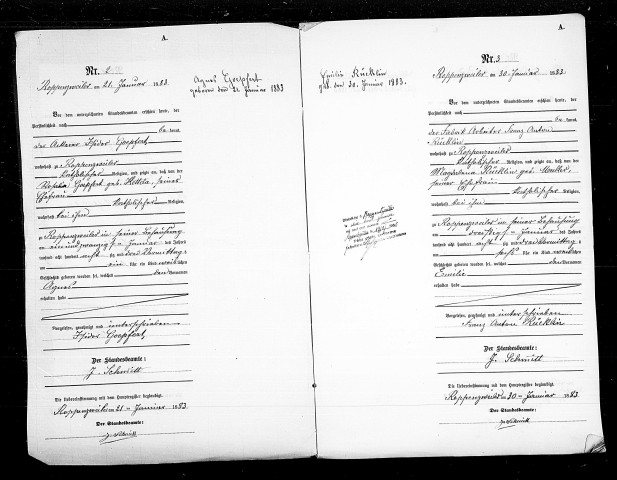 A.
Nr. 2
Roppenzweiler am 21. Januar 1883.
Agnes Goepfert
geboren den 21. Januar 1883
Vor dem unterzeichneten Standesbeamten erschien heute, der
Persönlichkeit nach
kannt,
der Ackerer Isidor Goepfert
wohnhaft zu Roppenzweiler
katholischer Religion, und zeigte an, daß von der
Goepfert geb. seiner
Ehefrau
katholischer Religion,
wohnhaft bei ihm
zu Roppenzweiler in seiner Behausung
am einundzwanzigsten Januar des Jahres
tausend acht hundert achtzig und drei Vormittags
um ein Uhr ein Kind weiblichen
Geschlechts geboren worden sei, welches den Vornamen
Agnes
erhalten habe
Vorgelesen, genehmigt und unterschrieben
Isidor Goepfert
Der Standesbeamte:
J. Schmitt
Die Uebereinstimmung mit dem Hauptregister beglaubigt.
Roppenzweiler am 21. Januar 1883.
Der Standesbeamte:
J. Schmitt
A.
Nr. 3
Roppenzweiler am 30. Januar 1883.
Emilie Rücklin
geb. den 30. Januar 1883.
Vor dem unterzeichneten Standesbeamten erschien heute, der
Persönlichkeit nach
kannt,
der Fabrik Arbeiter Franz Anton
Rücklin
wohnhaft zu Roppenzweiler
katholischer Religion, und zeigte an, daß von der
Magdalena Rücklin geb.
seiner Ehefrau
katholischer Religion,
wohnhaft bei ihm
zu Roppenzweiler in seiner Behausung
am dreißigsten Januar des Jahres
tausend acht hundert achtzig und drei Vormittags
um sechs Uhr ein Kind weiblichen
Geschlechts geboren worden sei, welches den Vornamen
Emilie
erhalten habe
Vorgelesen, genehmigt und unterschrieben
Franz Anton Rücklin
Der Standesbeamte:
J. Schmitt
Die Uebereinstimmung mit dem Hauptregister beglaubigt.
Roppenzweiler am 30. Januar 1883.
Der Standesbeamte:
J. Schmitt